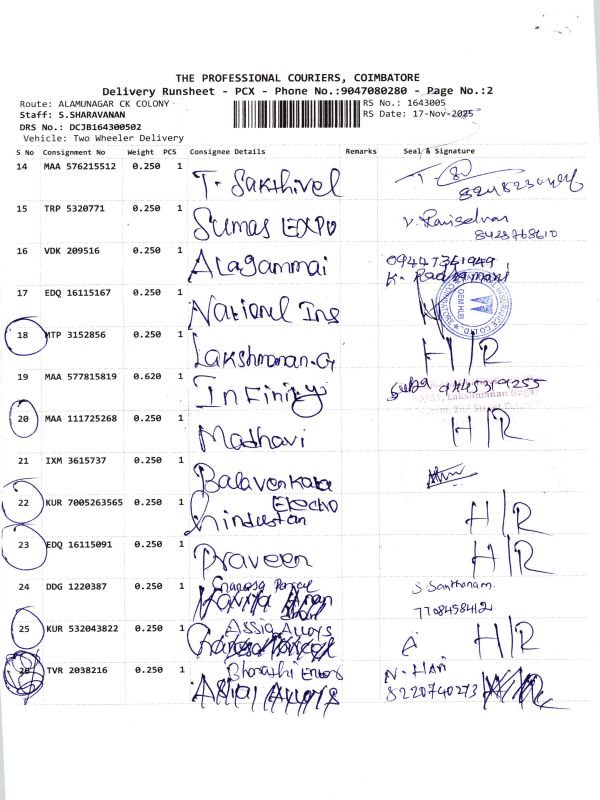 THE PROFESSIONAL COURIERS, COIMBATORE
Delivery Runsheet - PCX - Phone No.:9047080280 - Page No.:2
Route: ALAMUNAGAR CK COLONY
RS No.: 1643005
Staff: S.SHARAVANAN
RS Date: 17-Nov-2025
DRS No.: DCJB164300502
Vehicle: Two Wheeler Delivery
S No Consignment No Weight PCS Consignee Details Remarks Seal & Signature
14 MAA 576215512 0.250 1 T. Sakthivel
15 TRP 5320771 0.250 1 Sumas EXPO
8428768610
16 VDK 209516 0.250 1 Alagammai 09447341949
17 EDQ 16115167 0.250 1 National Ins
18 MTP 3152856 0.250 1 Lakshmanan.G H/R
19 MAA 577815819 0.620 1 Infinity Suba 9445319255
20 MAA 111725268 0.250 1 Madhavi H/R
21 IXM 3615737 0.250 1 Balavenkata
22 KUR 7005263565 0.250 1 Hindustan Electro H/R
23 EDQ 16115091 0.250 1 Praveen H/R
24 DDG 1220387 0.250 1 S. Santhanam
7708458424
25 KUR 532043822 0.250 1 Assia Alloys H/R
26 TVR 2038216 0.250 1 Bharathi N. Hari
8220740273